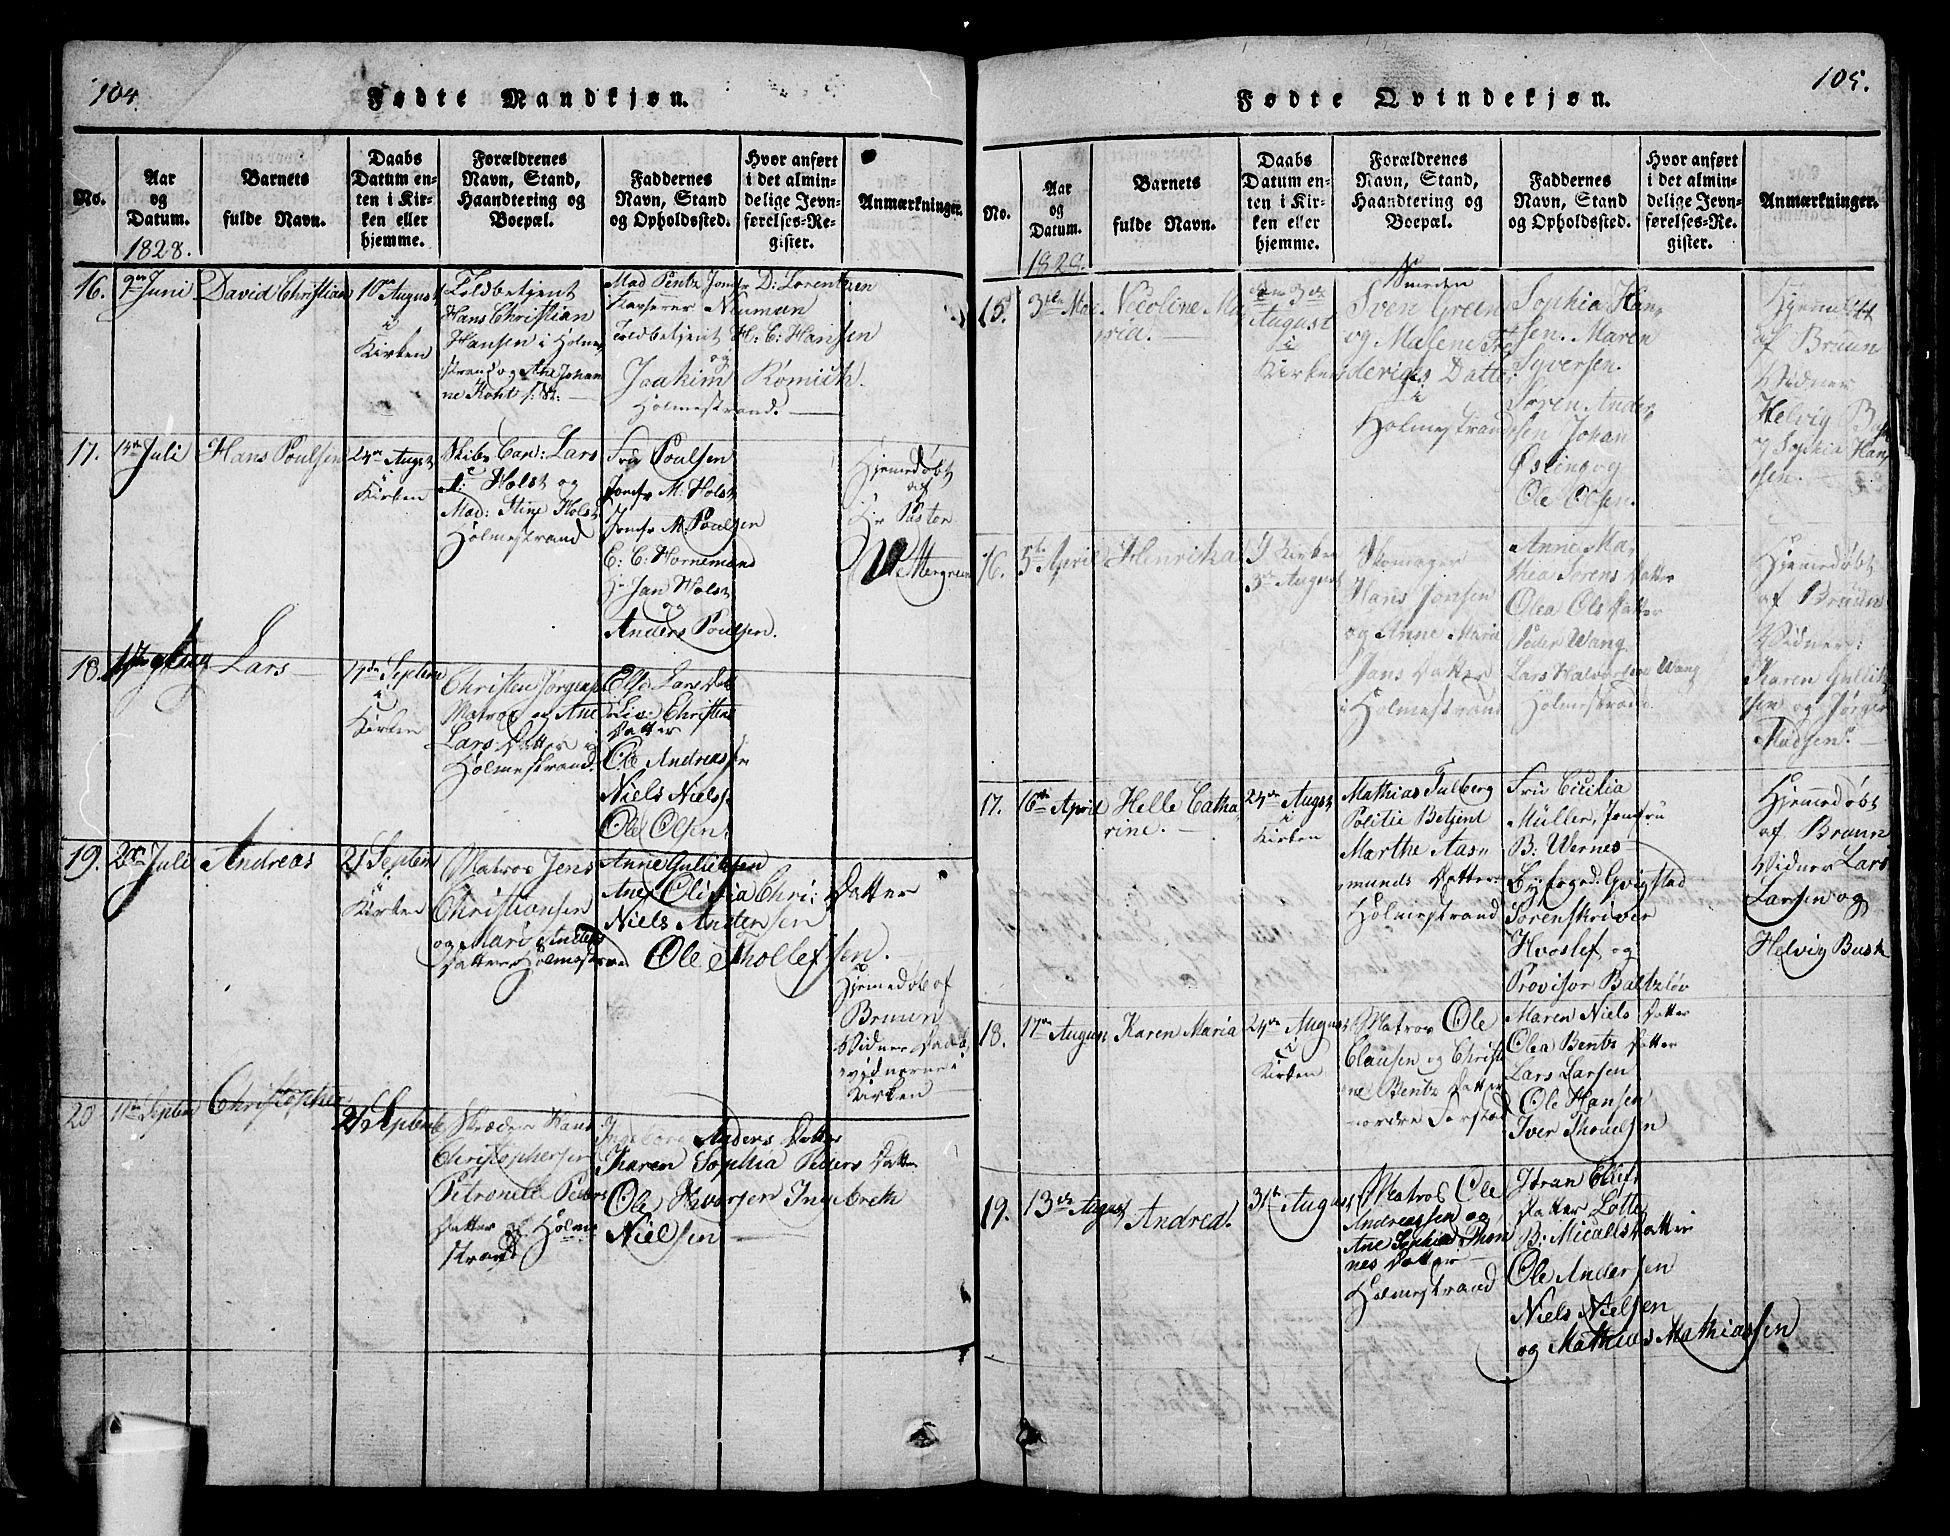 104.
Fødte Mandkjøn.
No.
Aar
og
Datum.
1828.
Barnets
fulde Navn.
Daabs
Datum en-
ten i Kir-
ken eller
hjemme.
Forældrenes
Navn, Stand,
Haandtering og
Boepæl.
Faddernes
Navn, Stand
og Opholdssted.
Hvor anført
i det almin-
delige Jevn-
førelses-Re-
gister.
Anmærkninger.
16.
9de Juni
David Christian
10de August
i
Kirken
Toldbetjent
Hans Christian
Hansen i Holme
strand og Ane Johan
ne
Mad Pentz Jomfr D: Lorentzen
Kasserer Neuman
Toldbetjent H: C: Hansen
og
Joakim Römich.
Holmestrand.
17.
14de Juli
Hans Poulsen
24de August
i
Kirken
Skibs Cap: Lars
Holst og
Mad: Stine Holst
Holmestrand
Fru Poulsen
Jomfr M: Holst
Jomfr M. Poulsen
C: C: Hornemand
Hr Jan Holst
og
Anders Poulsen.
Hjemedøbt
af
Hr Pastor
Wettergreen
18.
Aug
Lars
14de Septem
i
Kirken
Christen Jörgensen
Matros og Ane
Lars Datter i
Holmestrand.
Else Lars Datt
Live Christens
Datter
Ole Andreassen
Niels Nielss
Ole Olsen.
19.
Juli
Andreas
21 Septem
i
Kirken
Matros Jens
Christiansen
og Mari Anders
Datter Holmestrand
Anne Gulichsen
Ane Olivia Chri: Datter
Niels Andersen
Ole Thollefsen.
Hjemedøbt af
Bruun
Vidner Daab
vidnerne i
Kirken
20
11te Septem
Christopher
21 Septemb
Skræder Hans
Christophersen
Petronele Peders
Datter af Holme
strand
Ingeborg Anders Datter
Karen Sophia Peders Datter
Ole Havorsen Ingebreth
Nielsen
105.
Fødte Qvindekjøn.
No.
Aar
og
Datum.
1828.
Barnets
fulde Navn.
Daabs
Datum en-
ten i Kir-
ken eller
hjemme.
Forældrenes
Navn, Stand,
Haandtering og
Boepæl.
Faddernes
Navn, Stand
og Opholdssted.
Hvor anført
i det almin-
delige Jevn-
førelses-Re-
gister.
Anmærkninger.
15.
3die Mai
Nicoline Ma
ria.
den 3de
August
i
Kirken
Smeden
Sven Green
og Malene Fre
derichs Datter
i
Holmestrand
Sophia Han
sen. Maren
Syversen.
Søren Ander
sen Johan
Østeng og
Ole Olsen.
Hjemedøbt
af Bruun
Vidner
Helvig Busk
og Sophia Han
sen.
16.
5te April
Henrika
I Kirken
3de August
Skomager
Hans Jonsen
og Anne Maria
Jans Datter
i Holmestrand
Anne Ma
thea Sörens Datter
Olea Ols Datter
Peder Wang
Lars Halvorsen Wang
Holmestrand.
Hjemedøbt
af Bruun
Vidner:
Karen Gullik
sen og Jörgen
Madsen.
17.
16de April
Helle Catha
rine.
24de August
i
Kirken
Mathias Tulberg
Politie Betjent
Marthe Aasn
munds Datter:
Holmestrand
Fru Cicilia
Müller, Jomfru
B: Wernes
Byfoged: Gvigstad
Sorenskriver
Hvoslef og
Provisor Baltzløv
Hjemedøbt
af Bruun
Vidner Lars
Larsen og
Helvig Busk
18.
17de August
Karen Maria
24de August
i
Kirken
Matros Ole
Clausen og Christi
ane Bentz Datter
nordre Forstad
Maren Niels Datter
Olea Bentz Datter
Lars Larsen
Ole Hansen
Iver Thovelsen
19.
13de August
Andrea.
31te August
Matros Ole
Andreassen og
Ane Sophia Thom
nes Datter
Holmestrand
Jøran Ellefs
Datter Lotte
B: Micaels Datter
Ole Andersen
Niels Nielsen
og Mathias Mathiassen